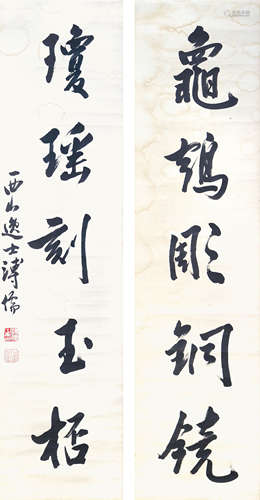 龜鶴彫銅鏡
瓊瑤刻玉桮
西山逸士溥儒